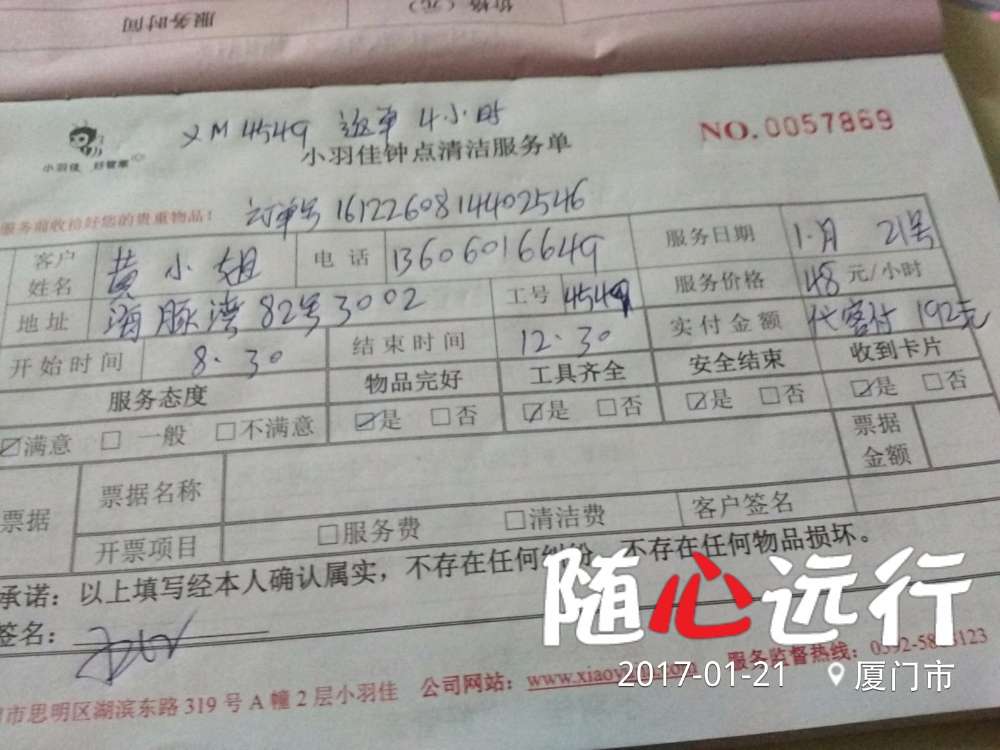 服务时间 价格（元）
XM 4549 返单 4小时
小羽佳 好管家
小羽佳钟点清洁服务单
NO.0057869
服务前收拾好您的贵重物品！ 订单号 16122608144402546
客户姓名 黄小姐 电话 13606016649 服务日期 1.月 21号
地址 海豚湾82号3002 工号 4549 服务价格 48 元/小时
开始时间 8.30 结束时间 12.30 实付金额 代客付 192元
服务态度 物品完好 工具齐全 安全结束 收到卡片
☑满意 □ 一般 □不满意 ☑是 □否 ☑是 □否 ☑是 □否 ☑是 □否
票据 票据名称 票据金额
开票项目 □服务费 □清洁费 客户签名
承诺：以上填写经本人确认属实，不存在任何纠纷，不存在任何物品损坏。
签名：
随心远行
市思明区湖滨东路 319 号 A 幢 2 层小羽佳 公司网站： 服务监督热线：
2017-01-21 厦门市